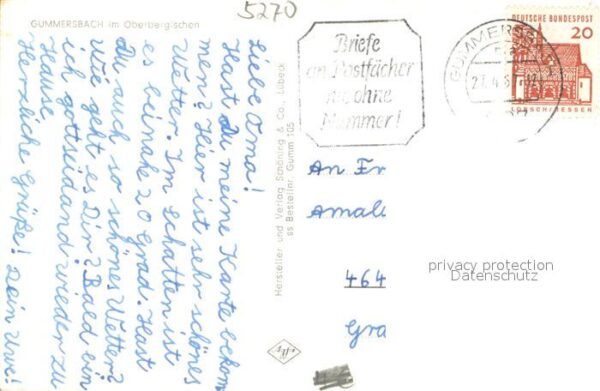 GUMMERSBACH im Oberbergischen
5270
Liebe Oma!
Hast du meine Karte bekom
men? Hier ist sehr schönes
Wetter. Im Schatten ist
es beinahe 20 Grad. Hast
Du auch so schönes Wetter?
Wie geht es Dir? Bald bin
ich gottseidank wieder zu
Hause
Herzliche Grüße! Dein Uwe!
Hersteller und Verlag Schöning & Co., Lübeck
ss Bestellnr. Gumm 105
Briefe
an Postfächer
nie ohne
Nummer!
GUMMERSBACH
DEUTSCHE BUNDESPOST
20
LORSCH/HESSEN
An Fr
Amali
464
Gra
privacy protection
Datenschutz